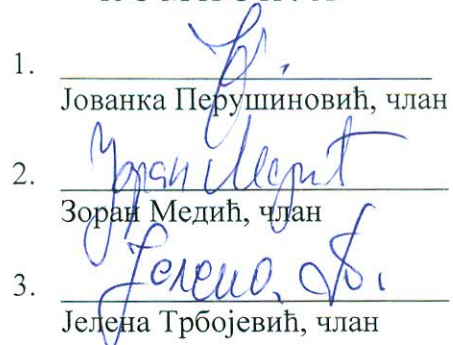 1.
Јованка Перушиновић, члан
2. Зоран Медић
Зоран Медић, члан
3. Јелена
Јелена Трбојевић, члан